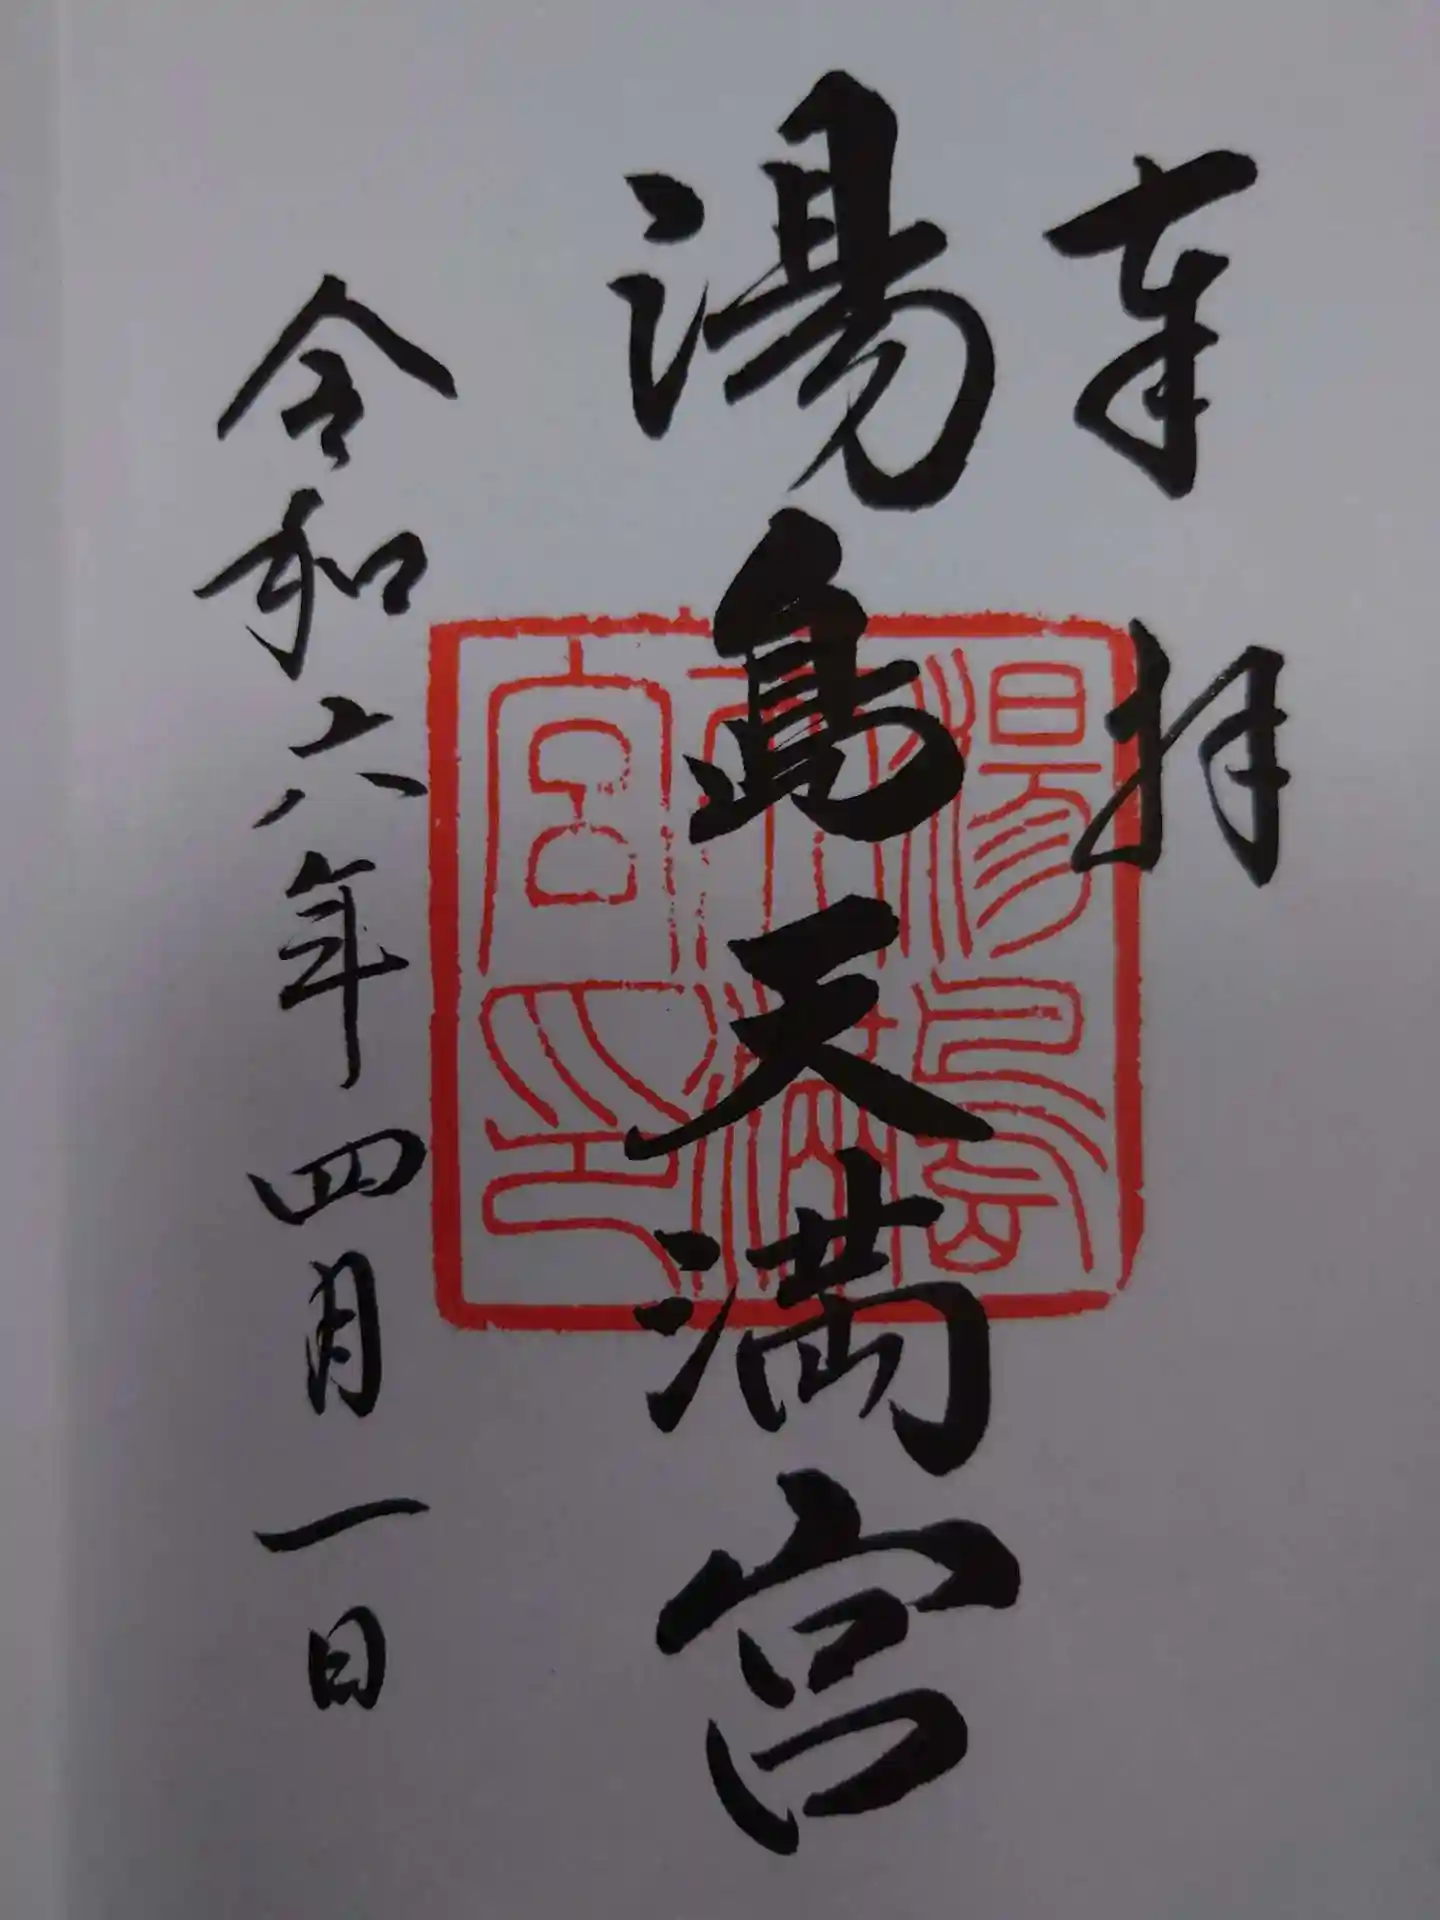 奉拝
湯島天満宮
湯島天満宮印
令和六年四月一日